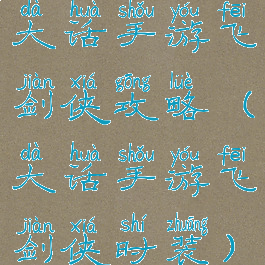 dà huà shǒu yóu fēi
大话手游飞
jiàn xiá gōng lüè
剑侠攻略（
dà huà shǒu yóu fēi
大话手游飞
jiàn xiá shí zhuāng
剑侠时装）